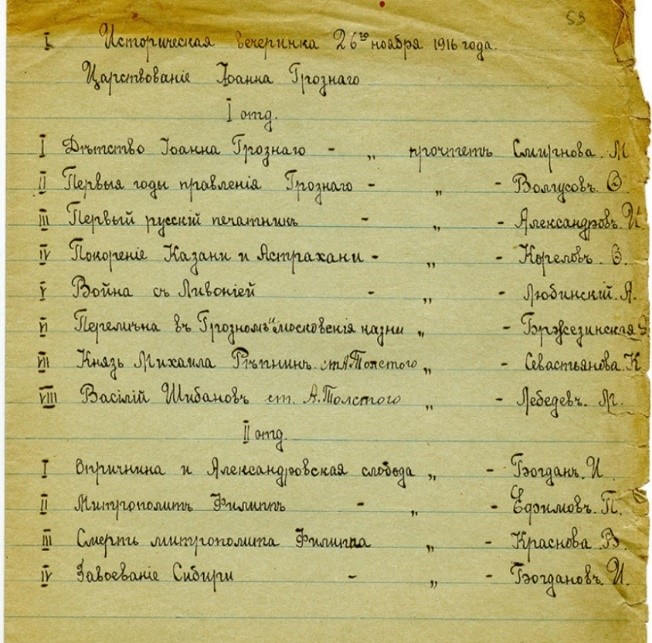 53
I. Историческая вечеринка 26го ноября 1916 года.
Царствованіе Іоанна Грознаго
I отд.
I Дѣтство Іоанна Грознаго - „ прочтетъ Смирнова. М
II Первыя годы правленія Грознаго - „ - Волгусовъ. С.
III Первый русскій печатникъ - „ - Александровъ. И.
IV Покореніе Казани и Астрахани - „ - Кореловъ. С.
V Война съ Ливоніей - „ - Любинскій. А.
VI Перемѣна въ Грозномъ и московскія казни „ - Бржезинская
VII Князь Михаила Рѣпнинъ. ст. А. Толстого „ - Севастьянова. К
VIII Василій Шибановъ ст. А. Толстого „ - Лебедевъ. М.
II отд.
I Опричнина и Александровская слобода „ - Богданъ. И.
II Митрополитъ Филиппъ - „ - Ефимовъ. П.
III Смерть митрополита Филиппа „ - Краснова. В.
IV Завоеваніе Сибири - „ - Богдановъ. И.